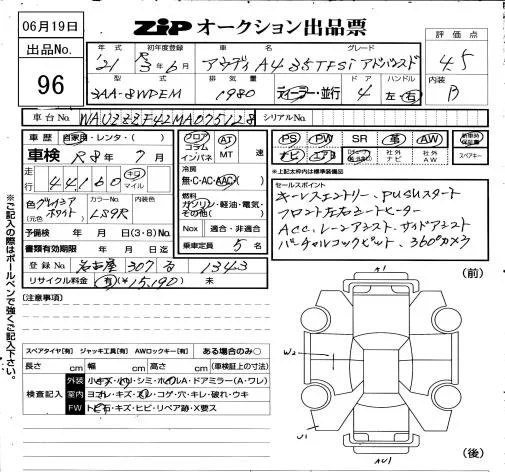 06月19日
ZIP オークション出品票
出品No. 96
年式 '21 初年度登録 R3年6月 車名 アウディA4 35TFSi アドバンスド グレード
評価点 4.5
型式 3AA-8WDEM 排気量 1980 ディーラー・並行 ドア 4 ハンドル 左・右
内装 B
車台No. WAUZZZF42MA075128 シリアルNo.
車歴 自家用・レンタ・( )
車検 R8年 7月
走行 44160 キロ マイル
色 グレイシアホワイト (元色) カラーNo. LS9R 内装色
予備検 年 月 日 (3・8) No.
書類有効期限 年 月 日迄
登録No. 名古屋 307 る 1343
リサイクル料金 有 (¥15,190) 未
フロア コラム インパネ AT MT 速
冷房 無・C・AC・AAC ( )
燃料 ガソリン・軽油・電気・その他( )
Nox 適合・非適合
乗車定員 5名
PS PW SR 革 AW
ナビ エアB 社外ナビ 社外AW
新車時保証書
スペアキー
※上記太枠内は標準装備品
セールスポイント
キーレスエントリー、PUSHスタート
フロント左右シートヒーター
ACC、レーンアシスト、サイドアシスト
バーチャルコックピット、360°カメラ
※ご記入の際はボールペンで強くご記入下さい。
[注意事項]
スペアタイヤ[有] ジャッキ工具[有] AWロックキー[有] ある場合のみ○
長さ cm 幅 cm 高さ cm (車検証上の寸法)
検査記入
外装 小キズ・凹・シミ・ホイルA・ドアミラー(A・ワレ)
室内 ヨゴレ・キズ・スレ・コゲ・穴・キレ・破れ・ウキ
FW トビ石・キズ・ヒビ・リペア跡・X要ス
A1
(前)
W2
U1
AU1
(後)